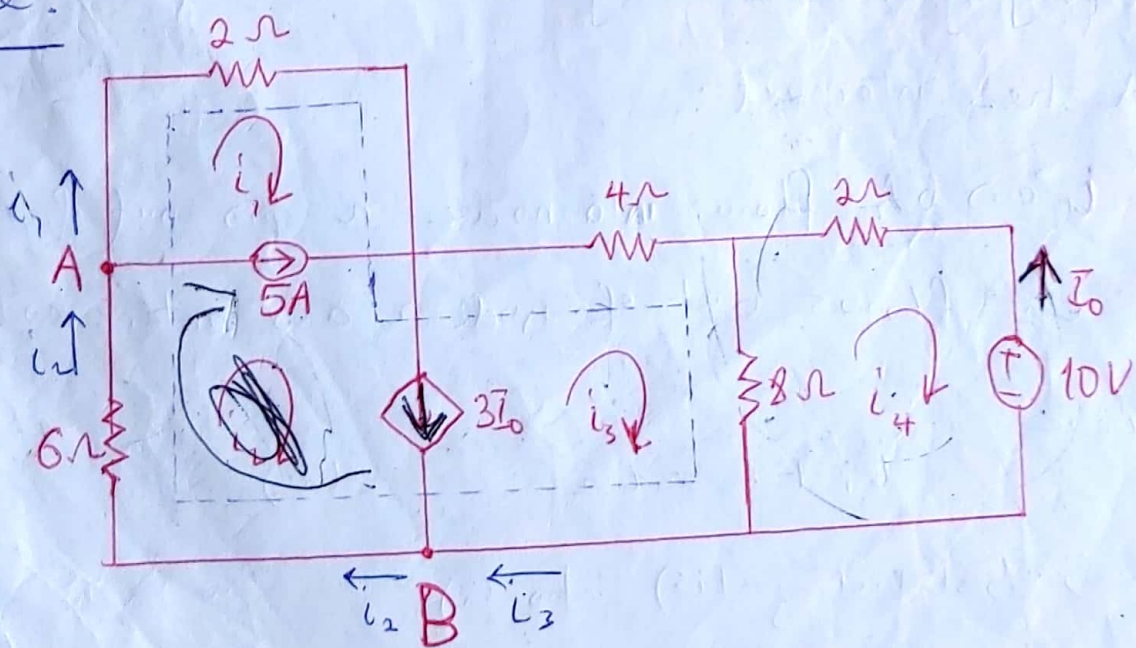 2.
2Ω
i₁
i₁
A
5A
4Ω
2Ω
I₀
i₂
6Ω
3I₀
i₃
8Ω
i₄
10V
+
−
i₂
B
i₃